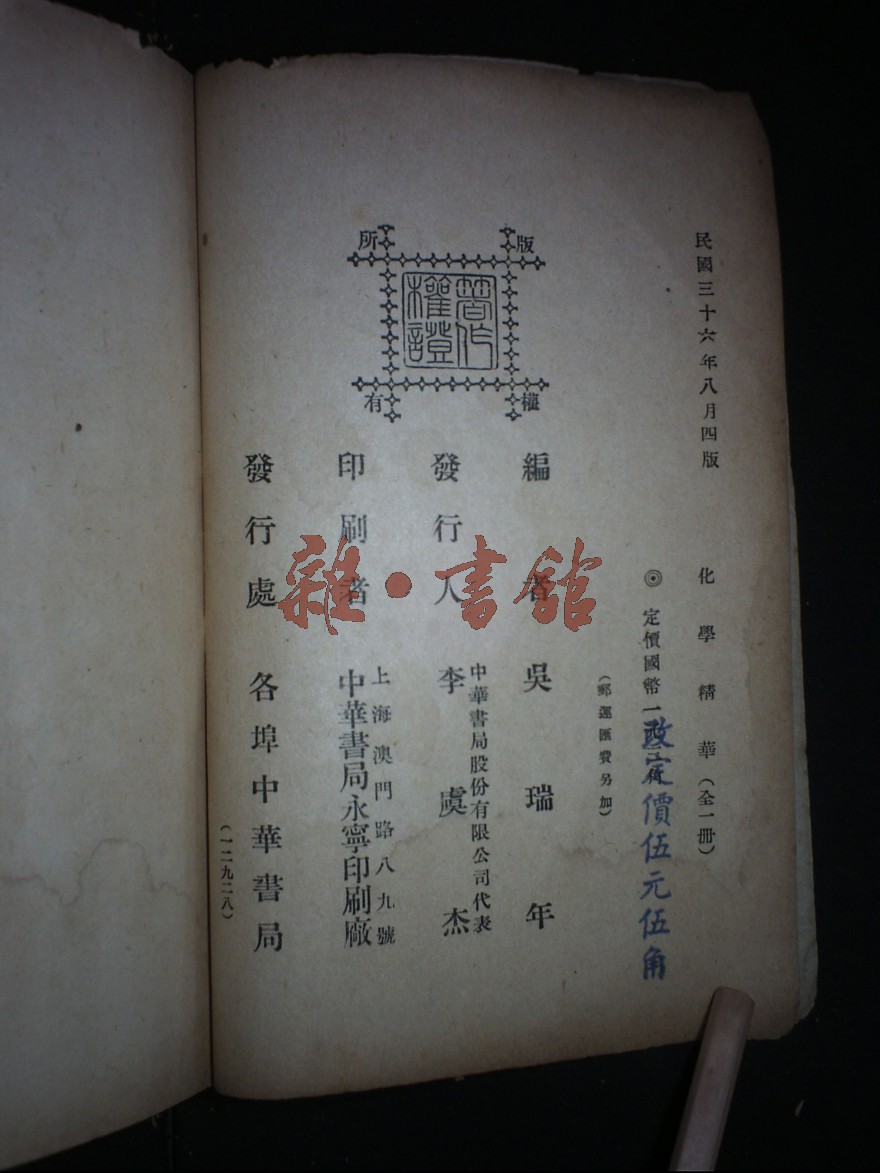 民國三十六年八月四版
化學精華（全一冊）
◎定價國幣一
改定價伍元伍角
（郵運匯費另加）
版權所有
著作權證
編者 吳瑞年
發行人 中華書局股份有限公司代表
李虞杰
印刷者 上海澳門路八九號
中華書局永寧印刷廠
發行處 各埠中華書局
（一二九二八）
雜·書館